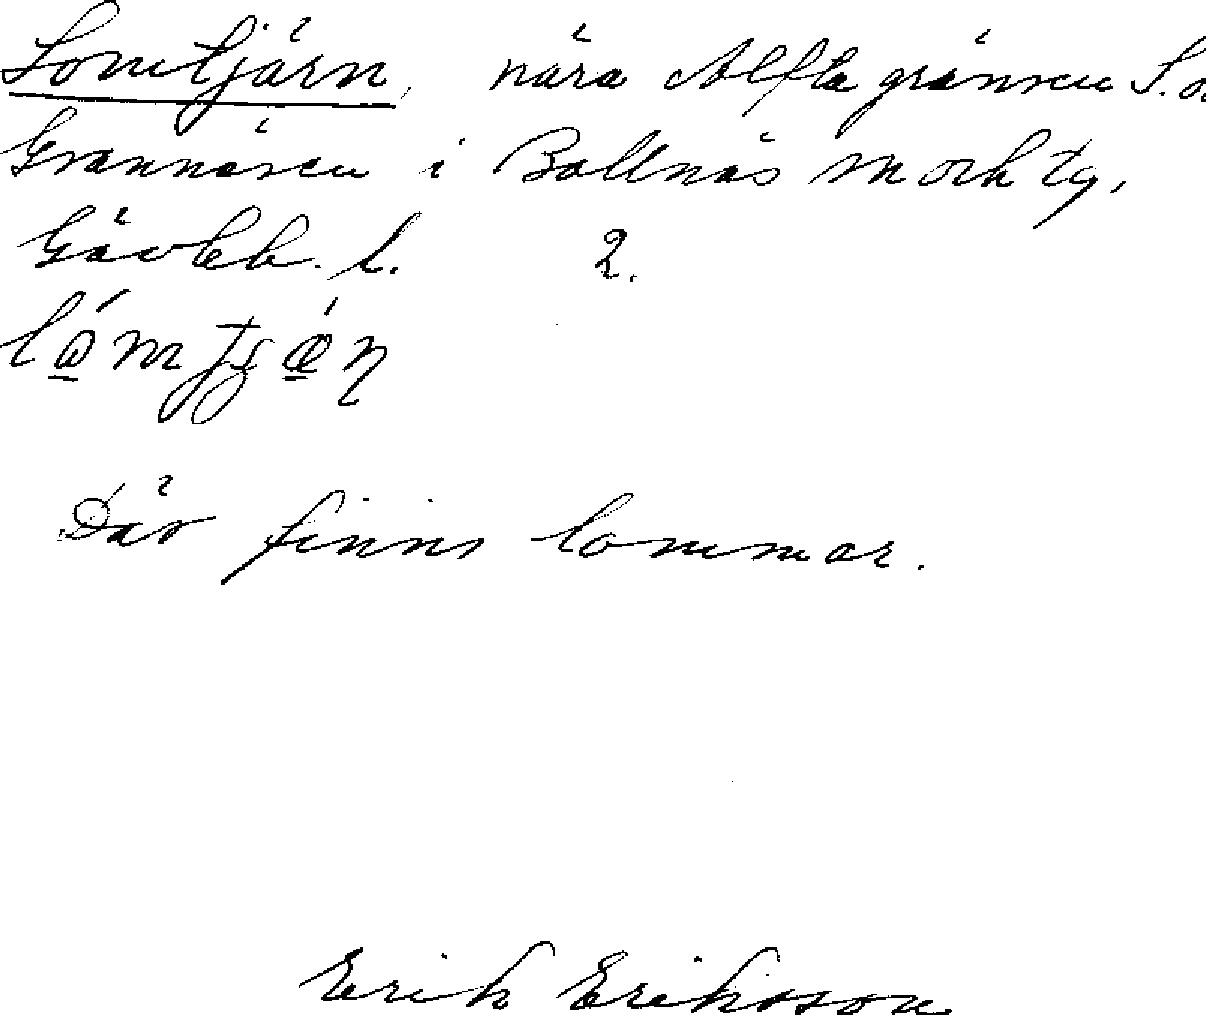 Lomtjärn, nära Alfta gränsen S.o
Grannäsen i Bollnäs sn och tg,
Gävleb. l. 2.
Där finns lommar.
Erik Eriksson